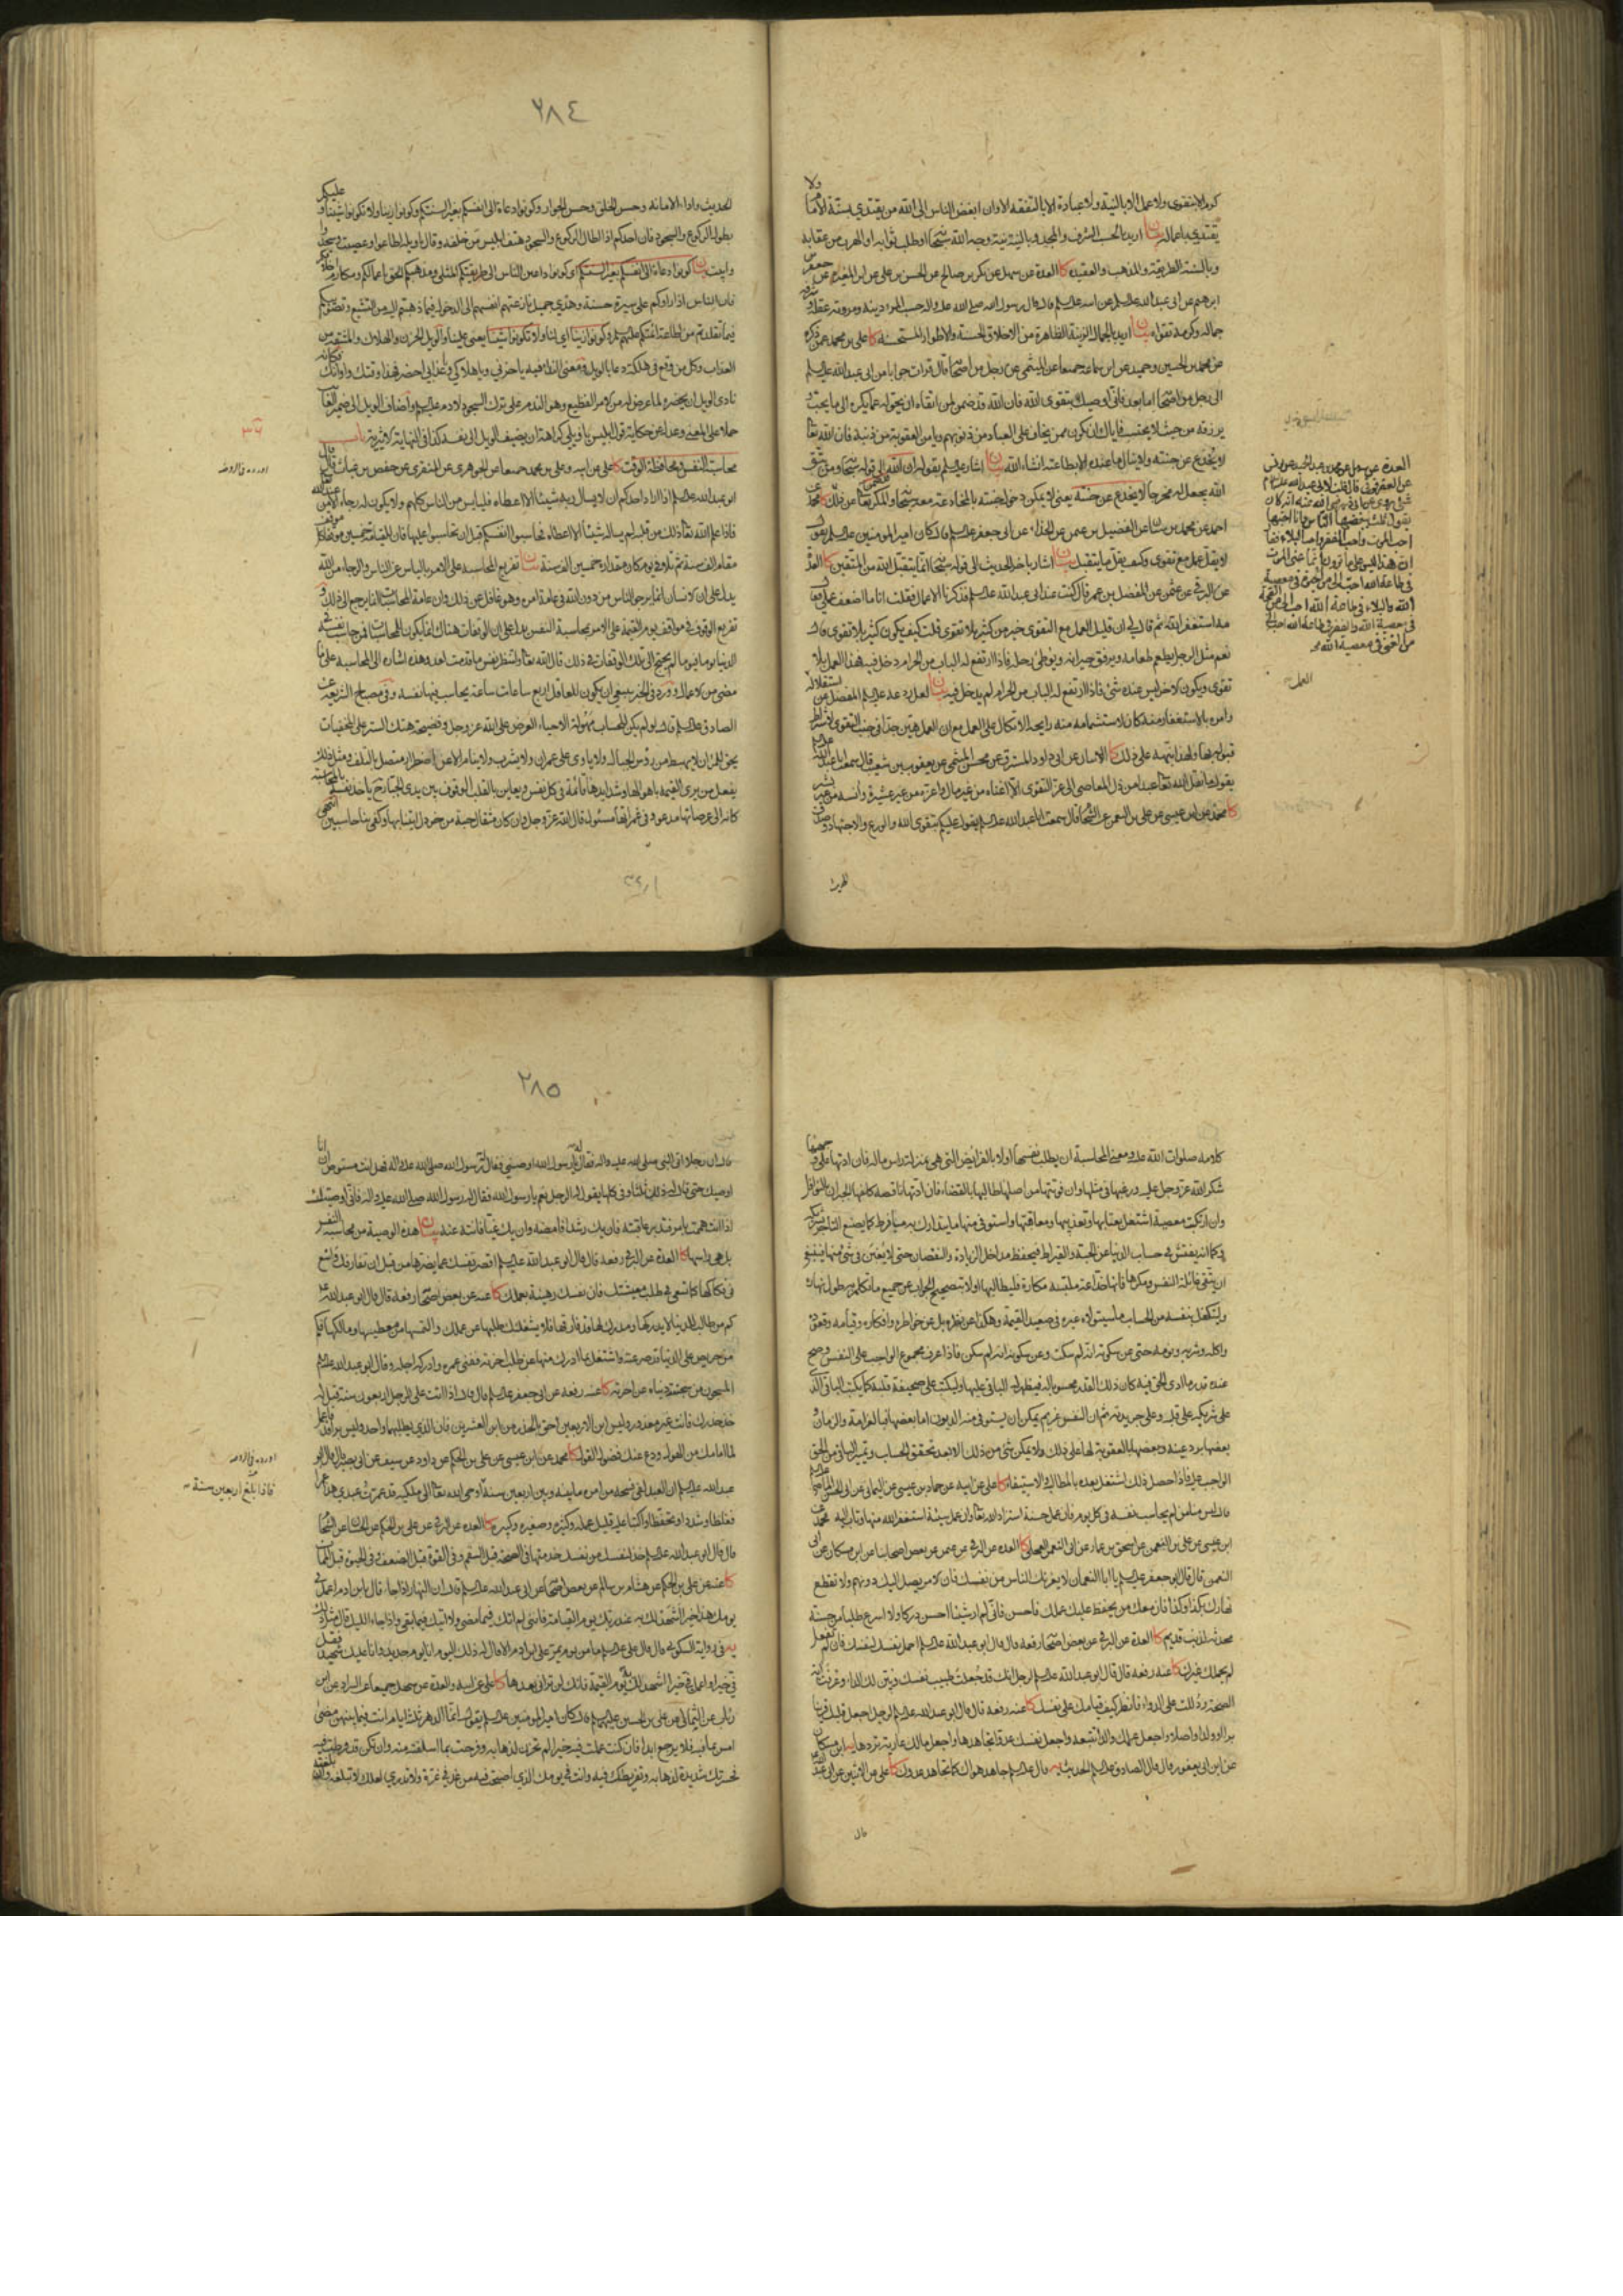 كرم الا بتقوى ولا عمل الا بالنية ولا عبادة الا بالتفقه الا وان ابغض الناس الى الله من يقتدي بسنة امام ولا
يقتدي باعماله بيان اريد بالحسب الشرف والمجد وبالنية نية وجه الله سبحانه وطلب ثوابه او الهرب من عقابه
وبالسنة الطريقة والمذهب والعقيدة كا العدة عن سهل عن بكر بن صالح عن الحسن بن علي عن
جماله وكرمه تقواه بيان اريد بالجمال الزينة الظاهرة من الاخلاق الحسنة والاطوار المستحسنة كا علي بن محمد عمن ذكره
عن محمد بن الحسين وحميد عن ابن سماعة جميعا عن الميثمي عن رجل من اصحابه قال قرات جوابا من ابي عبد الله عليه السلام
الى رجل من اصحابه اما بعد فاني اوصيك بتقوى الله فان الله قد ضمن لمن اتقاه ان يحوله عما يكره الى ما يحب و
يرزقه من حيث لا يحتسب فاياك ان تكون ممن يخاف على العباد من ذنوبهم ويامن العقوبة من ذنبه فان الله تعالى
لا يخدع عن جنته ولا ينال ما عنده الا بطاعته انشاء الله بيان اشار عليه السلام بقوله ان الله الى قوله سبحانه ومن يتق
الله يجعل له مخرجا لا يخدع عن جنته يعني لا يمكن دخول جنته بالمخادعة معه سبحانه والمكر
احمد عن محمد بن سنان عن الفضيل بن عمن عن الحذاء عن ابي جعفر عليه السلام قال كان امير المؤمنين عليه السلام يقول
لا يقل عمل مع تقوى وكيف يقل ما يتقبل بيان اشار باخر الحديث الى قوله سبحانه انما يتقبل الله من المتقين كا العدة
عن البرقي عن عثمن عن المفضل بن عمر قال كنت عند ابي عبد الله عليه السلام فذكرنا الاعمال فقلت انا ما اضعف عملي فقال
مه استغفر الله ثم قال لي ان قليل العمل مع التقوى خير من كثير بلا تقوى قلت كيف يكون كثير بلا تقوى قال
نعم مثل الرجل يطعم طعامه ويرفق جيرانه ويوطئ رحله فاذا ارتفع له الباب من الحرام دخل فيه فهذا العمل بلا
تقوى ويكون الاخر ليس عنده شئ فاذا ارتفع له الباب من الحرام لم يدخل فيه بيان لعل رده عليه السلام المفضل عن استقلاله
وامره بالاستغفار منه كان لاستشمامه منه رايحة الاتكال على العمل مع ان العمل هين جدا في جنب التقوى
يقول ما نقل الله تعالى عبدا من ذل المعاصي الى عز التقوى الا اغناه من غير مال واعزه من غير عشيرة وانسه من غير بشر
كا محمد عن ابن عيسى عن علي بن النعمن عن الشحام قال سمعت ابا عبد الله عليه السلام يقول عليكم بتقوى الله والورع والاجتهاد وصدق
الحديث
العمل
٢٨٤
الحديث واداء الامانة وحسن الخلق وحسن الجوار وكونوا دعاة الى انفسكم بغير السنتكم وكونوا زينا ولا تكونوا شينا وعليكم
بطول الركوع والسجود فان احدكم اذا اطال الركوع والسجود هتف ابليس من خلفه وقال يا ويله اطاعوا وعصيت وسجدوا
وابيت بيان كونوا دعاة الى انفسكم بغير السنتكم اي كونوا داعين الناس الى طريقتكم المثلى ومذهبكم الحق باعمالكم ومكارم اخلاقكم
فان الناس اذا راوكم على سيرة حسنة وهدي جميل نازعتهم انفسهم الى الدخول فيما ذهبتم اليه من التشيع
نادى الويل ان يحضره لما عرض له من الامر الفظيع وهو الندم على ترك السجود لادم عليه السلام واضاف الويل الى ضمير الغائب
حملا على المعنى وعدل عن حكاية قول ابليس يا ويلي كراهة ان يضيف الويل الى نفسه كذا في النهاية الاثيرية باب
محاسبة النفس ومحافظة الوقت كا علي عن ابيه وعلي بن محمد جميعا عن الجوهري عن المنقري عن حفص بن غياث قال قال
ابو عبد الله عليه السلام اذا اراد احدكم ان لا يسال ربه شيئا الا اعطاه فلييأس من الناس كلهم ولا يكون له رجاء الا من عند الله
فاذا علم الله تعالى ذلك من قلبه لم يساله شيئا الا اعطاه فحاسبوا انفسكم قبل ان تحاسبوا عليها فان للقيامة خمسين موقفا كل
مقام الف سنة ثم تلا في يوم كان مقداره خمسين الف سنة بيان تفريع المحاسبة على الامر بالياس عن الناس والرجاء من الله
يدل على ان الانسان انما يرجو الناس من دون الله في عامة امره وهو غافل عن ذلك وان عامة المحاسبات انما يرجع الى ذلك و
الدنيا يوما فيوما لم يحتج الى تلك الوقفات في ذلك قال الله تعالى ولتنظر نفس ما قدمت لغد وهذه اشارة الى المحاسبة على ما
مضى من الاعمال وورد في الخبر ينبغي ان يكون للعاقل اربع ساعات ساعة يحاسب فيها نفسه وفي مصباح الشريعة عن
الصادق عليه السلام قال لو لم يكن للحساب مهولة الا حياء العرض على الله عز وجل وفضيحة هتك الستر على المخفيات
يحق للمرء ان لا يهبط من رؤس الجبال ولا ياوي على عمران ولا يشرب ولا ينام الا عن اضطرار متصل بالتلف ومثل ذلك
يفعل من يرى القيمة باهوالها وشدايدها قائمة في كل نفس ويعاين بالقلب الوقوف بين يدي الجبار ح ياخذ نفسه بالمحاسبة
كانه الى عرصاتها مدعو وفي غمراتها مسئول قال الله عز وجل وان كان مثقال حبة من خردل اتينا بها وكفى بنا حاسبين انتهى
كلامه صلوات الله عليه ومعنى المحاسبة ان يطلب نفسه اولا بالفرايض التي هي بمنزلة راس ماله فان ادتها على وجهها
شكر الله عز وجل عليه ورغبها في مثلها وان فوتتها من اصلها طالبها بالقضاء فان ادتها ناقصة كلفها الجبران بالنوافل
وان ارتكبت معصية اشتغل بعتابها وتعذيبها ومعاقبتها واستوفى منها ما يتدارك به ما فرط كما يصنع التاجر بشريكه
وكما انه يفتش في حساب الدنيا عن الحبة والقيراط فيحفظ مداخل الزيادة والنقصان حتى لا يغبن في شئ منها فينبغي
ان يتقي غائلة النفس ومكرها فانها خداعة ملبسة مكارة فليطالبها اولا بتصحيح الجواب عن جميع ما تكلم به طول نهاره
وليتكفل بنفسه من الحساب ما سيتولاه غيره في صعيد القيمة وهكذا عن نظره بل عن خواطره وافكاره وقيامه وقعوده
واكله وشربه ونومه حتى عن سكوته انه لم سكت وعن سكونه انه لم سكن فاذا عرف مجموع الواجب على النفس وصح
عنده قدر ما ادى الحق فيه كان ذلك القدر محسوبا له فيظهر له الباقي عليها وليكتبه على صحيفة قلبه كما يكتب الباقي الذي
على شريكه على قلبه وعلى جريدته ثم ان النفس غريم يمكن ان يستوفي منه الديون اما بعضها فبالغرامة والضمان و
بعضها برد عينه وبعضها بالعقوبة لها على ذلك ولا يمكن شئ من ذلك الا بعد تحقق الحساب وتميز الباقي من الحق
الواجب عليه فاذا حصل ذلك اشتغل بعده بالمطالبة والاستيفاء كا علي عن ابيه عن حماد بن عيسى عن اليماني عن ابي الحسن الماضي عليه السلام
قال ليس منا من لم يحاسب نفسه في كل يوم فان عمل حسنة استزاد الله تعالى وان عمل سيئة استغفر الله منها وتاب اليه كا محمد عن
ابن عيسى عن علي بن النعمن عن اسحق بن عمار عن ابي النعمن العجلي كا العدة عن البرقي عن عثمن عن بعض اصحابنا عن ابن مسكان عن ابي
النعمن قال قال ابو جعفر عليه السلام يا ابا النعمان لا يغرنك الناس من نفسك فان الامر يصل اليك دونهم ولا تقطع
نهارك بكذا وكذا فان معك من يحفظ عليك عملك فاحسن فاني لم ار شيئا احسن دركا ولا اسرع طلبا من حسنة
محدثة لذنب قديم كا العدة عن البرقي عن بعض اصحابه رفعه قال قال ابو عبد الله عليه السلام احمل نفسك لنفسك فان لم تفعل
لم يحملك غيرك كا عنه رفعه قال قال ابو عبد الله عليه السلام لرجل انك قد جعلت طبيب نفسك وبين لك الداء وعرفت اية
الصحة ودللت على الدواء فانظر كيف قيامك على نفسك كا عنه رفعه قال قال ابو عبد الله عليه السلام لرجل اجعل قلبك قرينا
برا وولدا واصلا واجعل عملك والدا تتبعه واجعل نفسك عدوا تجاهدها واجعل مالك عارية تردها يه ابن مسكان
عن ابن ابي يعفور قال قال الصادق عليه السلام الحديث يه قال عليه السلام جاهد هواك كما تجاهد عدوك كا علي عن الاثنين عن ابي عبد الله
قال
٢٨٥
قال ان رجلا اتى النبي صلى الله عليه واله فقال له يا رسول الله اوصني فقال له رسول الله صلى الله عليه واله فهل انت مستوص ان انا
اوصيك حتى قال له ذلك ثلثا وفي كلها يقول له الرجل نعم يا رسول الله فقال له رسول الله صلى الله عليه واله فاني اوصيك
اذا انت هممت بامر فتدبر عاقبته فان يك رشدا فامضه وان يك غيا فانته عنه بيان هذه الوصية من محاسبة النفس
بل هي راسها كا العدة عن البرقي رفعه قال قال ابو عبد الله عليه السلام اقصر نفسك عما يضرها من قبل ان تفارقك واسع
في فكاكها كما تسعى في طلب معيشتك فان نفسك رهينة بعملك كا عنه عن بعض اصحابه رفعه قال قال ابو عبد الله عليه السلام
كم من طالب للدنيا لا يدركها ومدرك لها قد فارقها فلا يشغلنك طلبها عن عملك والتمسها من معطيها ومالكها فكم
من حريص على الدنيا قد صرعته واشتغل بما ادرك منها عن طلب اخرته ففني عمره وادركه اجله وقال ابو عبد الله عليه السلام
المسجون من سجنته دنياه عن اخرته كا عنه رفعه عن ابي جعفر عليه السلام قال قال اذا اتت على الرجل اربعون سنة قيل له
خذ حذرك فانك غير معذور وليس ابن الاربعين احق بالحذر من ابن العشرين فان الذي يطلبهما واحد وليس براقد فاعمل
لما امامك من الهول ودع عنك فضول القول كا محمد عن ابن عيسى عن علي بن الحكم عن داود عن سيف عن ابي بصير قال قال ابو
عبد الله عليه السلام ان العبد لفي فسحة من امره ما بينه وبين اربعين سنة اوحى الله تعالى الى ملكيه قد عمرت عبدي هذا عمرا
فغلظا وشددا وتحفظا واكتبا عليه قليل عمله وكثيره وصغيره وكبيره كا العدة عن البرقي عن علي بن الحكم عن حسان عن الشحام
قال قال ابو عبد الله عليه السلام خذ لنفسك من نفسك خذ منها في الصحة قبل السقم وفي القوة قبل الضعف وفي الحيوة قبل الممات
كا عنه عن علي بن الحكم عن هشام بن سالم عن بعض اصحابه عن ابي عبد الله عليه السلام قال ان النهار اذا جاء قال يا بن ادم اعمل في
يومك هذا خيرا اشهد لك به عند ربك يوم القيامة فاني لم اتك فيما مضى ولا اتيك فيما بقي واذا جاء الليل قال مثل ذلك
يه في رواية السكوني قال قال علي عليه السلام ما من يوم يمر على ابن ادم الا قال له ذلك اليوم انا يوم جديد وانا عليك شهيد فقل
في خيرا واعمل في خيرا اشهد لك به يوم القيمة فانك لن تراني بعدها كا علي عن ابيه والعدة عن سهل جميعا عن السراد عن ابن
رئاب عن الثمالي عن علي بن الحسين عليهما السلام قال كان امير المؤمنين عليه السلام يقول انما الدهر ثلثة ايام انت فيما بينهن مضى
امس بما فيه فلا يرجع ابدا فان كنت عملت فيه خيرا لم تحزن لذهابه وفرحت بما اسلفته منه وان تكن قد فرطت فيه
فحسرتك شديدة لذهابه وتفريطك فيه وانت في يومك الذي اصبحت فيه من غد في غرة ولا تدري لعلك لا تبلغه وان بلغته
اورده في الروضة
فاذا بلغ اربعين سنة